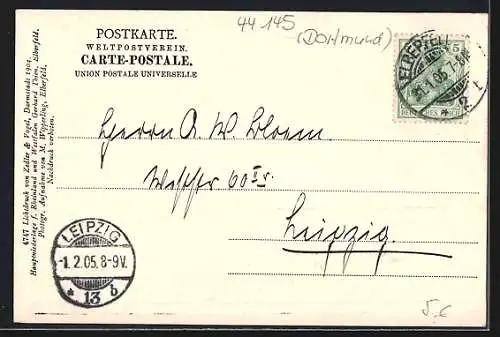 44145
(Dortmund)
POSTKARTE.
WELTPOSTVEREIN.
CARTE-POSTALE.
UNION POSTALE UNIVERSELLE
5
ELBERFELD
31.1.05. 7-8N.
* 2 t
DEUTSCHES REICH
Herrn A. W. Bloem.
60 II r.
Leipzig.
LEIPZIG
-1.2.05.8-9V.
* 13 b
4747 Lichtdruck von Zedler & Vogel, Darmstadt 1904.
Hauptniederlage f. Rheinland und Westfalen Gerhard Thien, Elberfeld.
Photogr. Aufnahme von M. Wipperling, Elberfeld.
Nachdruck verboten.
5.-€